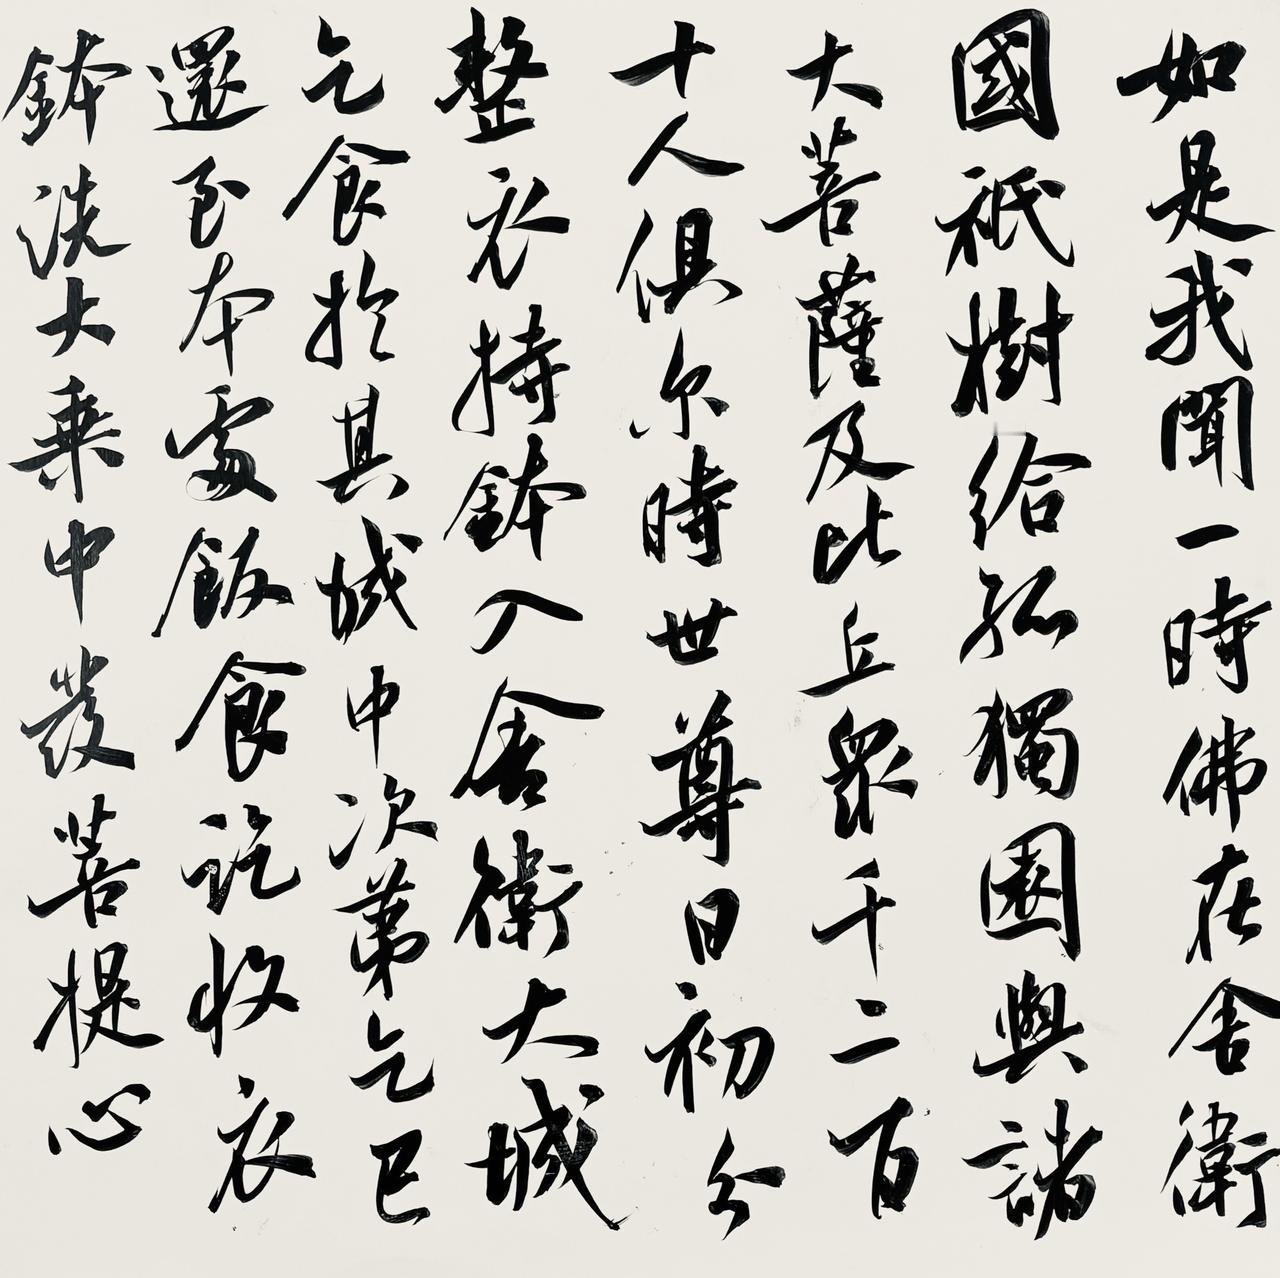 如是我聞一時佛在舍衛
國祇樹給孤獨園與諸
大菩薩及比丘衆千二百
十人俱尔時世尊日初分
整衣持鉢入舍衛大城
乞食於其城中次第乞已
還至本處飯食訖收衣
鉢洗大乘中發菩提心